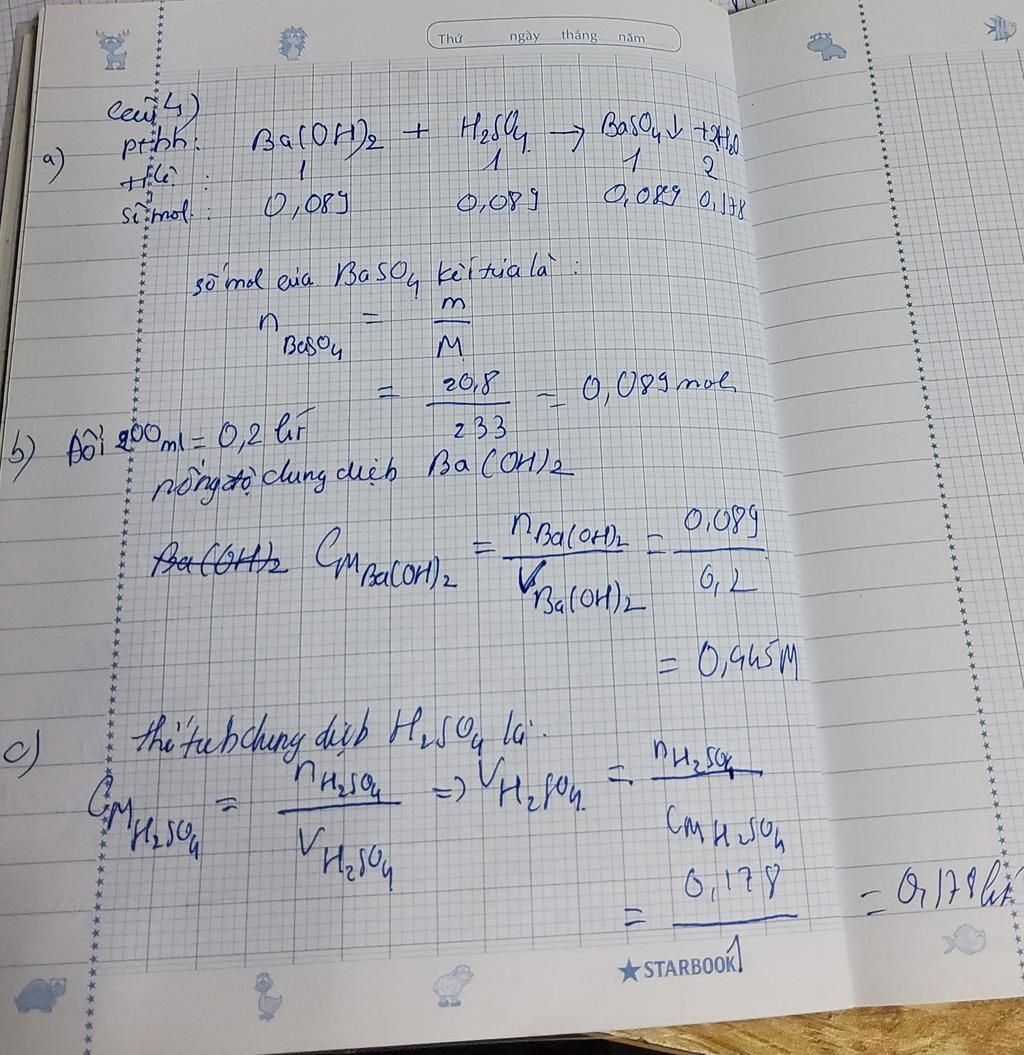 Thứ ngày tháng năm
Câu 4)
a) ptbh: Ba(OH)₂ + H₂SO₄ → BaSO₄↓ + 2H₂O
tỉ lệ : 1 1 1 2
số mol : 0,089 0,089 0,089 0,178
số mol của BaSO₄ kết tủa là :
n BaSO₄ = m / M
= 20,8 / 233 = 0,089 mol
b) Đổi 200ml = 0,2 lít
nồng độ dung dịch Ba(OH)₂
Ba(OH)₂ CM Ba(OH)₂ = n Ba(OH)₂ / V Ba(OH)₂ = 0,089 / 0,2
= 0,445M
c) thể tích dung dịch H₂SO₄ là.
CM H₂SO₄ = n H₂SO₄ / V H₂SO₄ => V H₂SO₄ = n H₂SO₄ / CM H₂SO₄
= 0,178 / 1 = 0,178 lít
STARBOOK